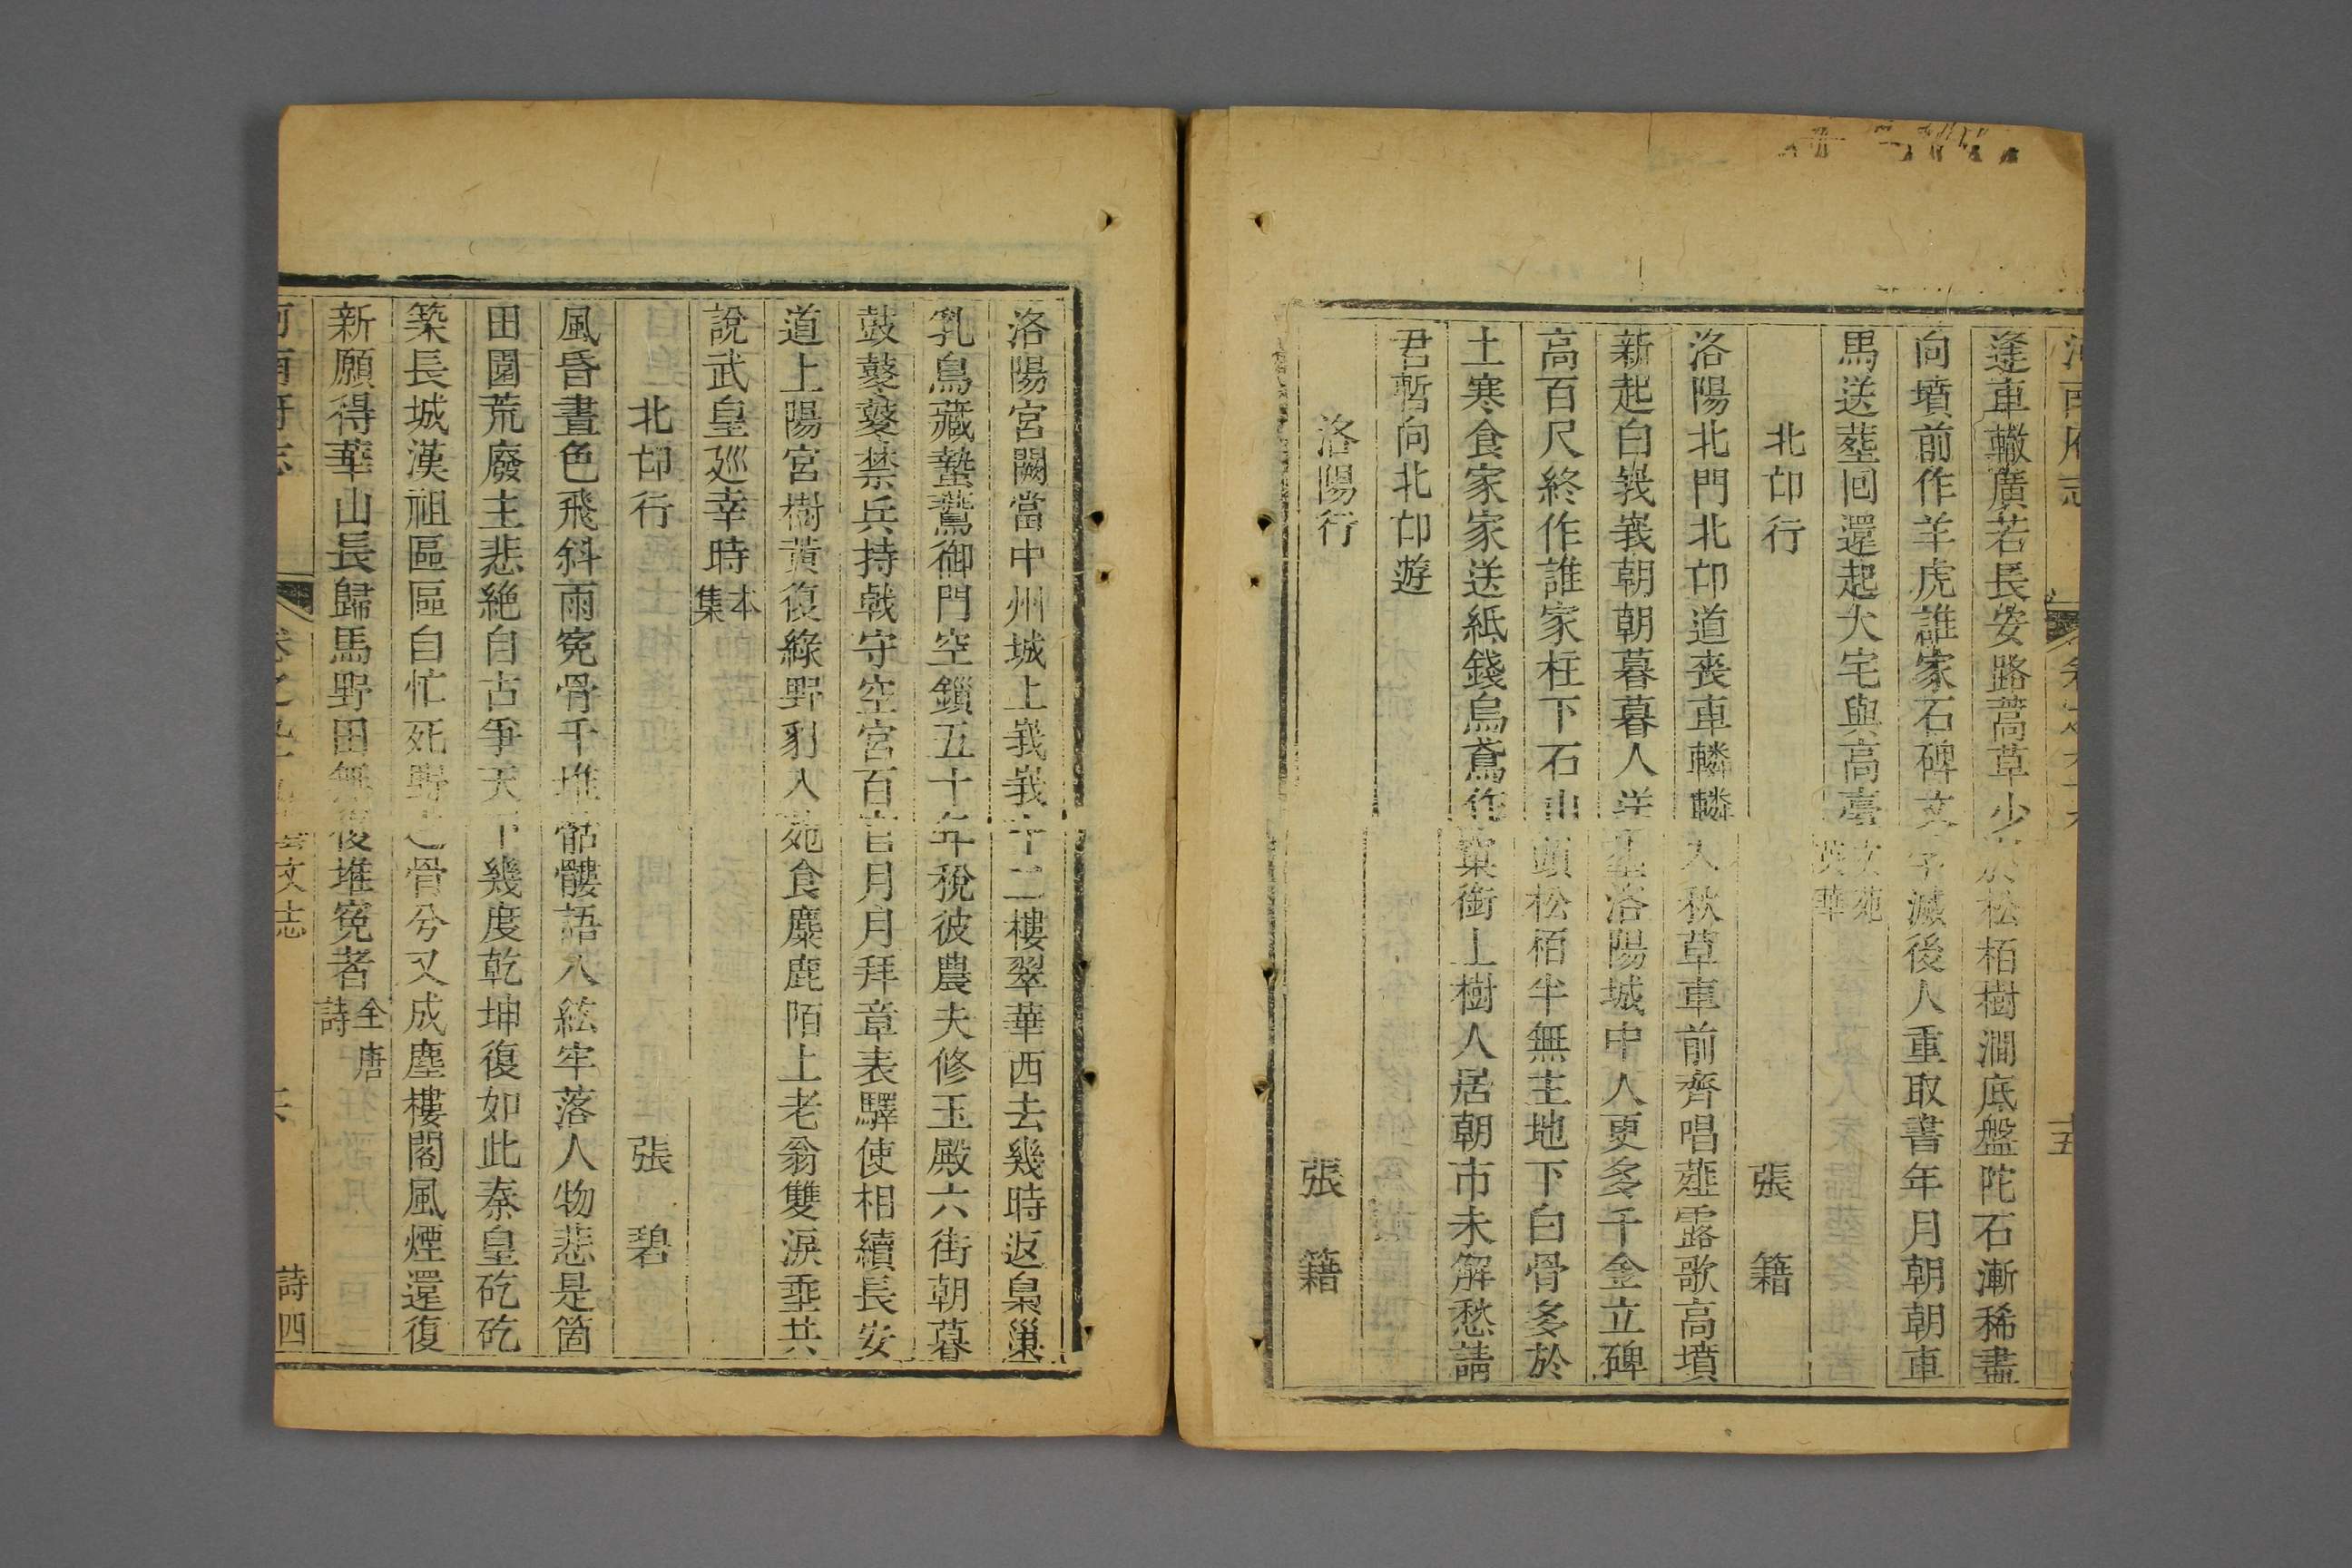 河南府志
十五
逢車轍廣若長安路蒿草少於松栢樹澗底盤陀石漸稀盡
向墳前作羊虎誰家石碑文字滅後人重取書年月朝朝車
馬送塟回還起大宅與高臺文苑英華
北邙行 張籍
洛陽北門北邙道喪車轔轔入秋草車前齊唱薤露歌高墳
新起白峩峩朝朝暮暮人送塟洛陽城中人更多千金立碑
高百尺終作誰家柱下石山頭松栢半無主地下白骨多於
土寒食家家送紙錢烏鳶作窠銜上樹人居朝市未解愁請
君暫向北邙遊
洛陽行 張籍
洛陽宮闕當中州城上峩峩十二樓翠華西去幾時返梟巢
乳鳥藏蟄鷰御門空鎖五十年稅彼農夫修玉殿六街朝暮
鼓鼕鼕禁兵持戟守空宮百官月月拜章表驛使相續長安
道上陽宮樹黃復綠野豺入苑食麋鹿陌上老翁雙淚垂共
說武皇廵幸時本集
北邙行 張碧
風昏晝色飛斜雨寃骨千堆髑髏語八紘牢落人物悲是箇
田園荒廢主悲絶自古爭天下幾度乾坤復如此秦皇矻矻
築長城漢祖區區自忙死野之骨兮又成塵樓閣風煙還復
新願得華山長歸馬野田無復堆寃者全唐詩
河南府志 卷之 藝文志 詩四